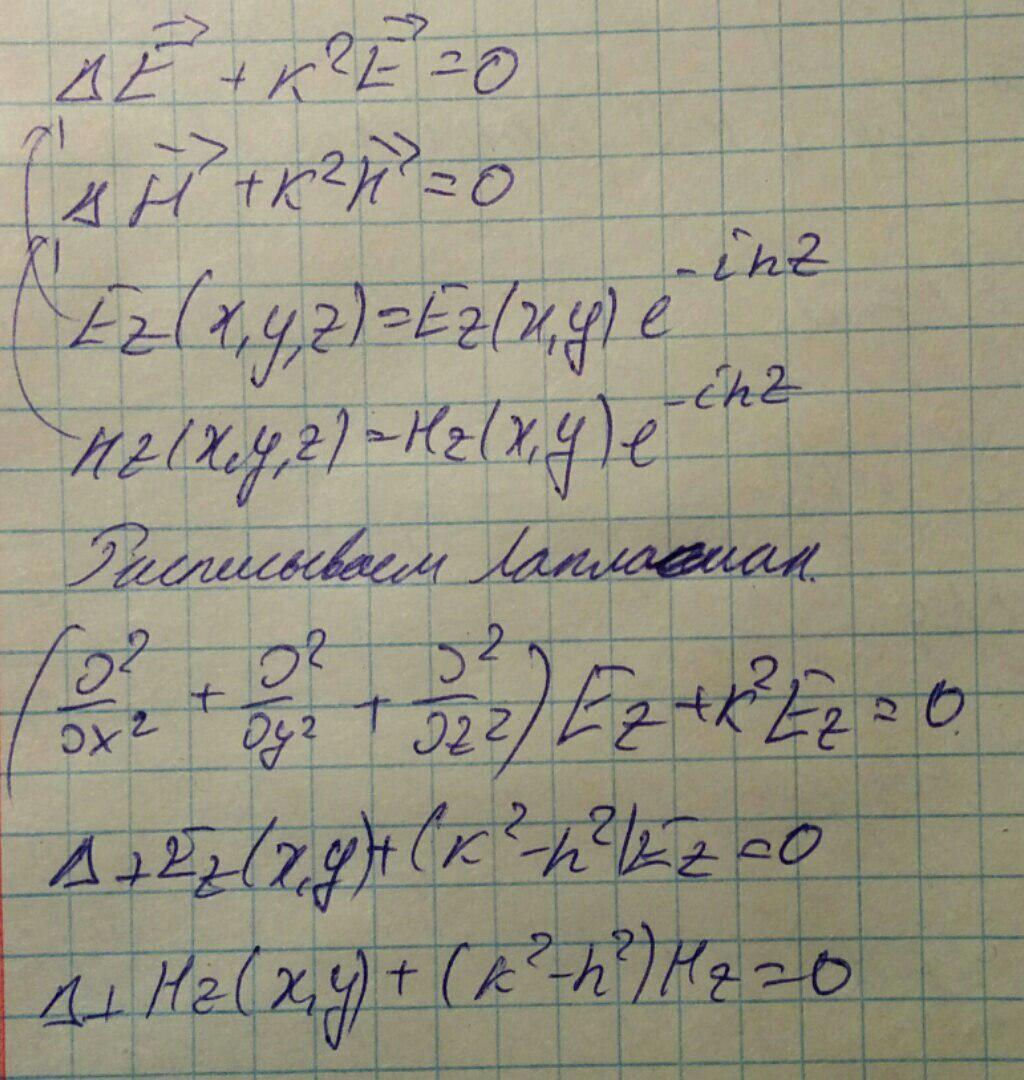 ΔE⃗ + k²E⃗ = 0
ΔH⃗ + k²H⃗ = 0
Ez(x,y,z) = Ez(x,y) e^{-ihz}
Hz(x,y,z) = Hz(x,y) e^{-ihz}
Расписываем Лапласиан.
(∂²/∂x² + ∂²/∂y² + ∂²/∂z²) Ez + k²Ez = 0.
Δ⊥Ez(x,y) + (k²-h²)Ez = 0
Δ⊥Hz(x,y) + (k²-h²)Hz = 0